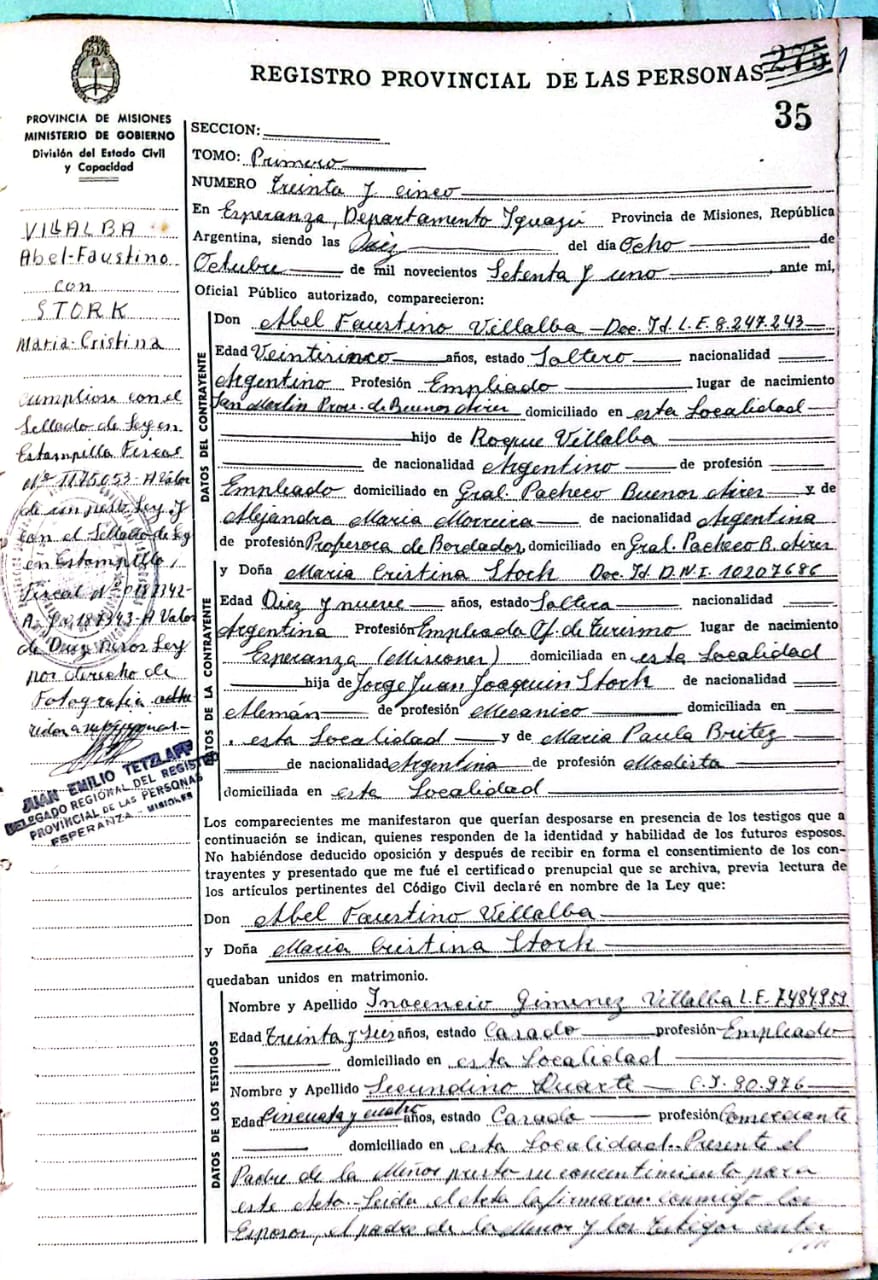 REGISTRO PROVINCIAL DE LAS PERSONAS 275
35
PROVINCIA DE MISIONES
MINISTERIO DE GOBIERNO
División del Estado Civil
y Capacidad
VILLALBA
Abel-Faustino
con
STORK
Maria-Cristina
cumpliose con el
Sellado de Ley en
Estampilla Fiscal
Nº 1175053-A Valor
de un peso Ley y
con el Sellado de Ley
en Estampilla
Fiscal Nº 187342-
A y 187343-A Valor
de Diez Pesos Ley
por derecho de
Fotografia
JUAN EMILIO TETZLAFF
DELEGADO REGIONAL DEL REGISTRO
PROVINCIAL DE LAS PERSONAS
ESPERANZA - MISIONES
SECCION:
TOMO: Primero
NUMERO Treinta y cinco
En Esperanza, Departamento Iguazú Provincia de Misiones, República
Argentina, siendo las Diez del día Ocho de
Octubre de mil novecientos Setenta y uno, ante mi,
Oficial Público autorizado, comparecieron:
DATOS DEL CONTRAYENTE
Don Abel Faustino Villalba - Doc. Id. L.E. 8.247.243
Edad Veinticinco años, estado Soltero nacionalidad
Argentino Profesión Empleado lugar de nacimiento
San Martin Prov. de Buenos Aires domiciliado en esta Localidad
hijo de Roque Villalba
de nacionalidad Argentino de profesión
Empleado domiciliado en Gral. Pacheco Buenos Aires y de
Alejandra Maria Morreira de nacionalidad Argentina
de profesión Profesora de Bordados, domiciliado en Gral. Pacheco B. Aires
DATOS DE LA CONTRAYENTE
y Doña Maria Cristina Stork Doc. Id. D.N.I. 10207686
Edad Diez y nueve años, estado Soltera nacionalidad
Argentina Profesión Empleada Of. de Turismo lugar de nacimiento
Esperanza (Misiones) domiciliada en esta Localidad
hija de Jorge Juan Joaquin Stork de nacionalidad
Alemán de profesión Mecanico domiciliada en
esta Localidad y de Maria Paula Britez
de nacionalidad Argentina de profesión Modista
domiciliada en esta Localidad
Los comparecientes me manifestaron que querían desposarse en presencia de los testigos que a
continuación se indican, quienes responden de la identidad y habilidad de los futuros esposos.
No habiéndose deducido oposición y después de recibir en forma el consentimiento de los con-
trayentes y presentado que me fué el certificado prenupcial que se archiva, previa lectura de
los artículos pertinentes del Código Civil declaré en nombre de la Ley que:
Don Abel Faustino Villalba
y Doña Maria Cristina Stork
quedaban unidos en matrimonio.
DATOS DE LOS TESTIGOS
Nombre y Apellido Inocencio Gimenez Villalba L.E. 7484959
Edad Treinta y Seis años, estado Casado profesión Empleado
domiciliado en esta Localidad
Nombre y Apellido Secundino Duarte - C.I. 90.976
Edad Cincuenta y cuatro años, estado Casado profesión Comerciante
domiciliado en esta Localidad. Presente el
Padre de la Menor presta su concentimiento para
este Acto.- Leida el Acta la firmaron conmigo los
Esposos, el padre de la Menor y los testigos antes